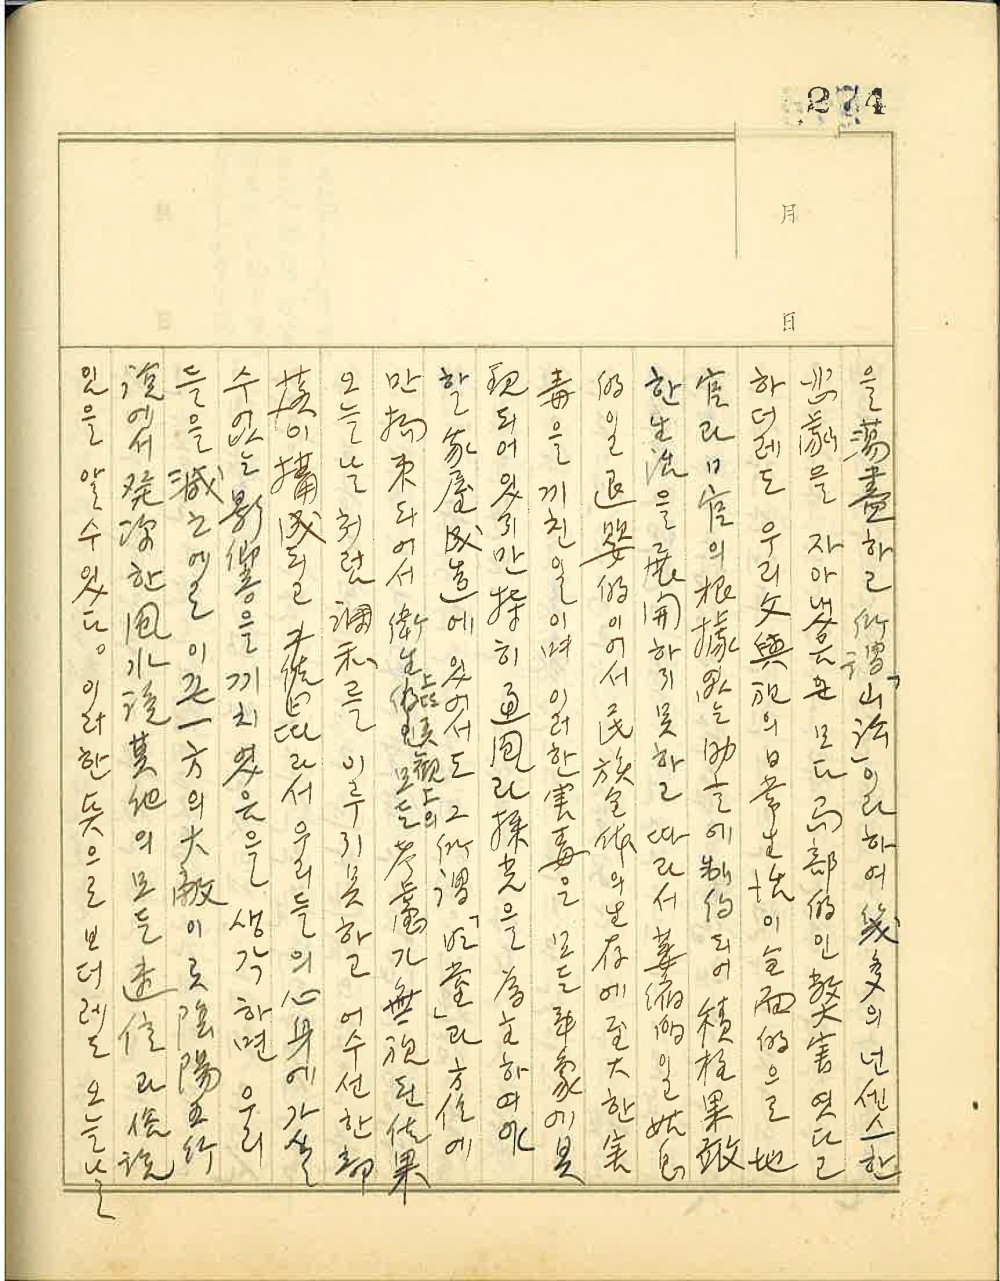 274
月
日
을 蕩盡하고 所謂「山訟」이라하여 幾多의 넌센스한
悲劇을 자아냈음은 모다 局部的인 弊害엿다고
하더레도 우리 文輿祝의 日常生活이 全面的으로 地
官과 日官의 根據없는 助言에 制約되어 積極果敢
한 生活을 展開하지 못하고 따라서 萎縮的일 姑息
的일 退嬰的이어서 民族全体의 生存에 至大한 害
毒을 끼친일이며 이러한 害毒은 모든 事象에 具
現되어 있지만 特히 通風과 採光을 為主하여야
할 家屋 成造에 있어서도 그 所謂「明堂」과 方位에
만 拘束되어서 衛生上 美観上의 모든 考慮가 無視된 結果
오늘날처럼 調和를 이루지 못하고 어수선한 部
落이 構成되고 따라서 우리들의 心身에 가실
수 없는 影響을 끼치였음을 생각하면 우리
들을 滅亡에로 이끈 一方의 大敵이 곳 陰陽五行
說에서 発源한 風水說 其他의 모든 迷信과 俗說
임을 알수있다。 이러한 뜻으로 보더레도 오늘날